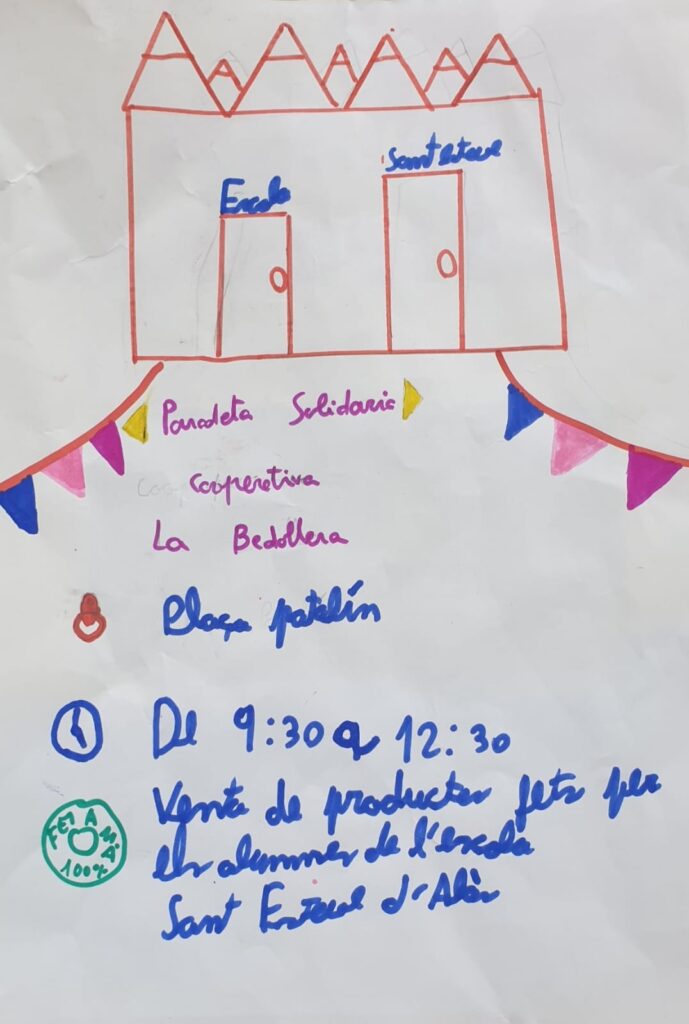 Escola
Sant Esteve
Paradeta Solidaria
cooperetiva
La Bedollera
Plaça patalín
De 9:30 a 12:30
Venta de productes fets per
els alumnes de l'escola
Sant Esteve d'Alàs
FET A MÀ
100%